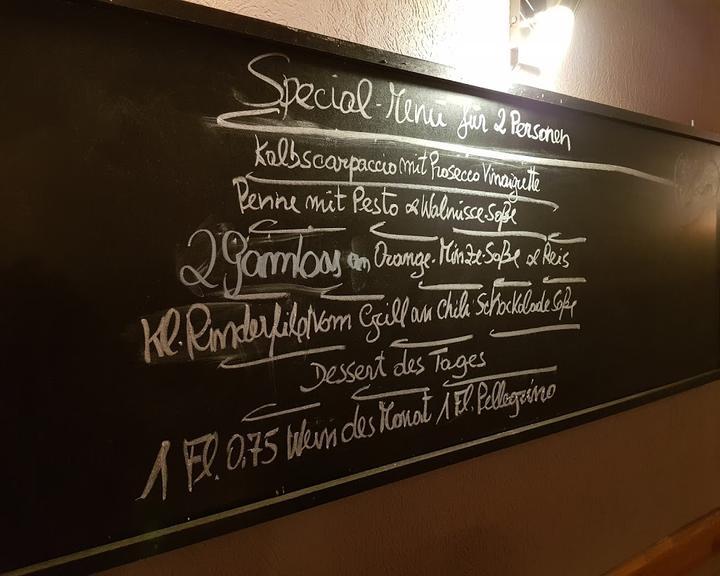 Special-Menü für 2 Personen
Kalbscarpaccio mit Prosecco Vinaigrette
Penne mit Pesto & Walnüsse-Soße
2 Gambas an Orange-Minze-Soße & Reis
Kl. Rinderfilet Vom Grill an Chili Schockolade Soße
Dessert des Tages
1 Fl. 0,75 Wein des Monat 1 Fl. Pellegrino